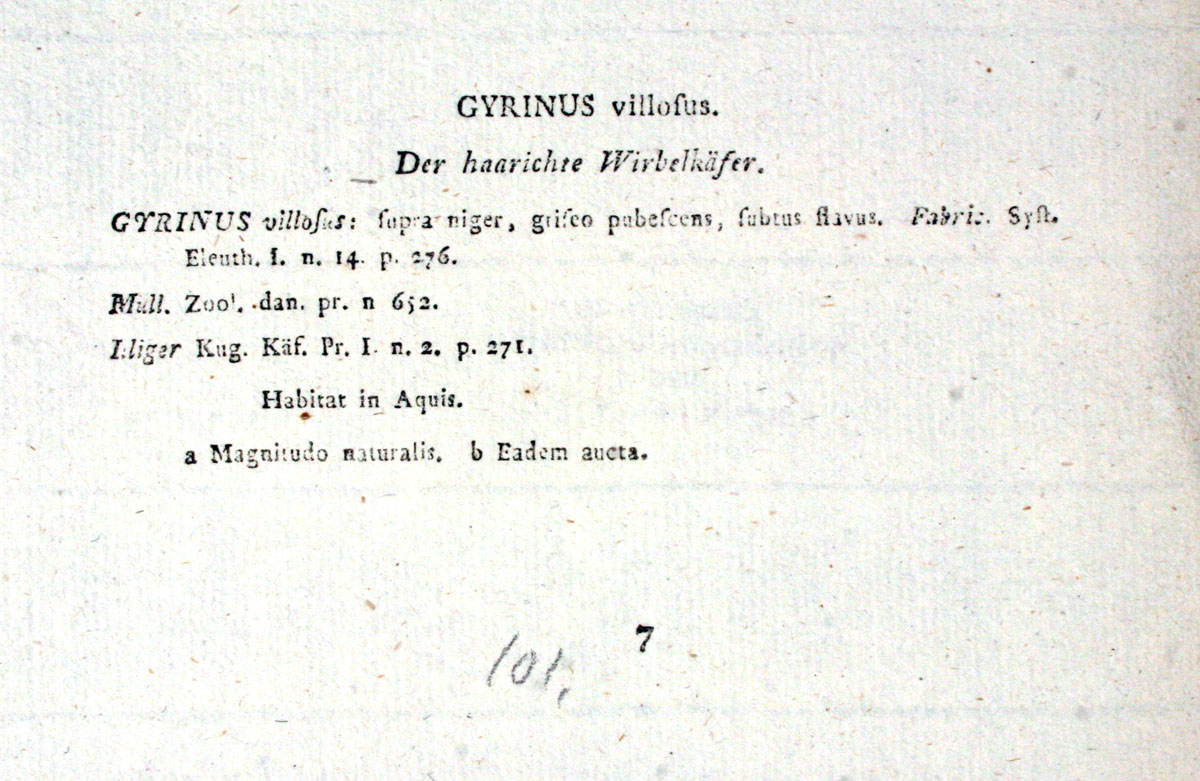 GYRINUS villoſus.
Der haarichte Wirbelkäfer.
GYRINUS villoſus: ſupra niger, griſeo pubeſcens, ſubtus flavus. Fabric. Syſt.
Eleuth. I. n. 14. p. 276.
Mull. Zool. dan. pr. n 652.
Illiger Kug. Käf. Pr. I. n. 2. p. 271.
Habitat in Aquis.
a Magnitudo naturalis. b Eadem aucta.
7
101.